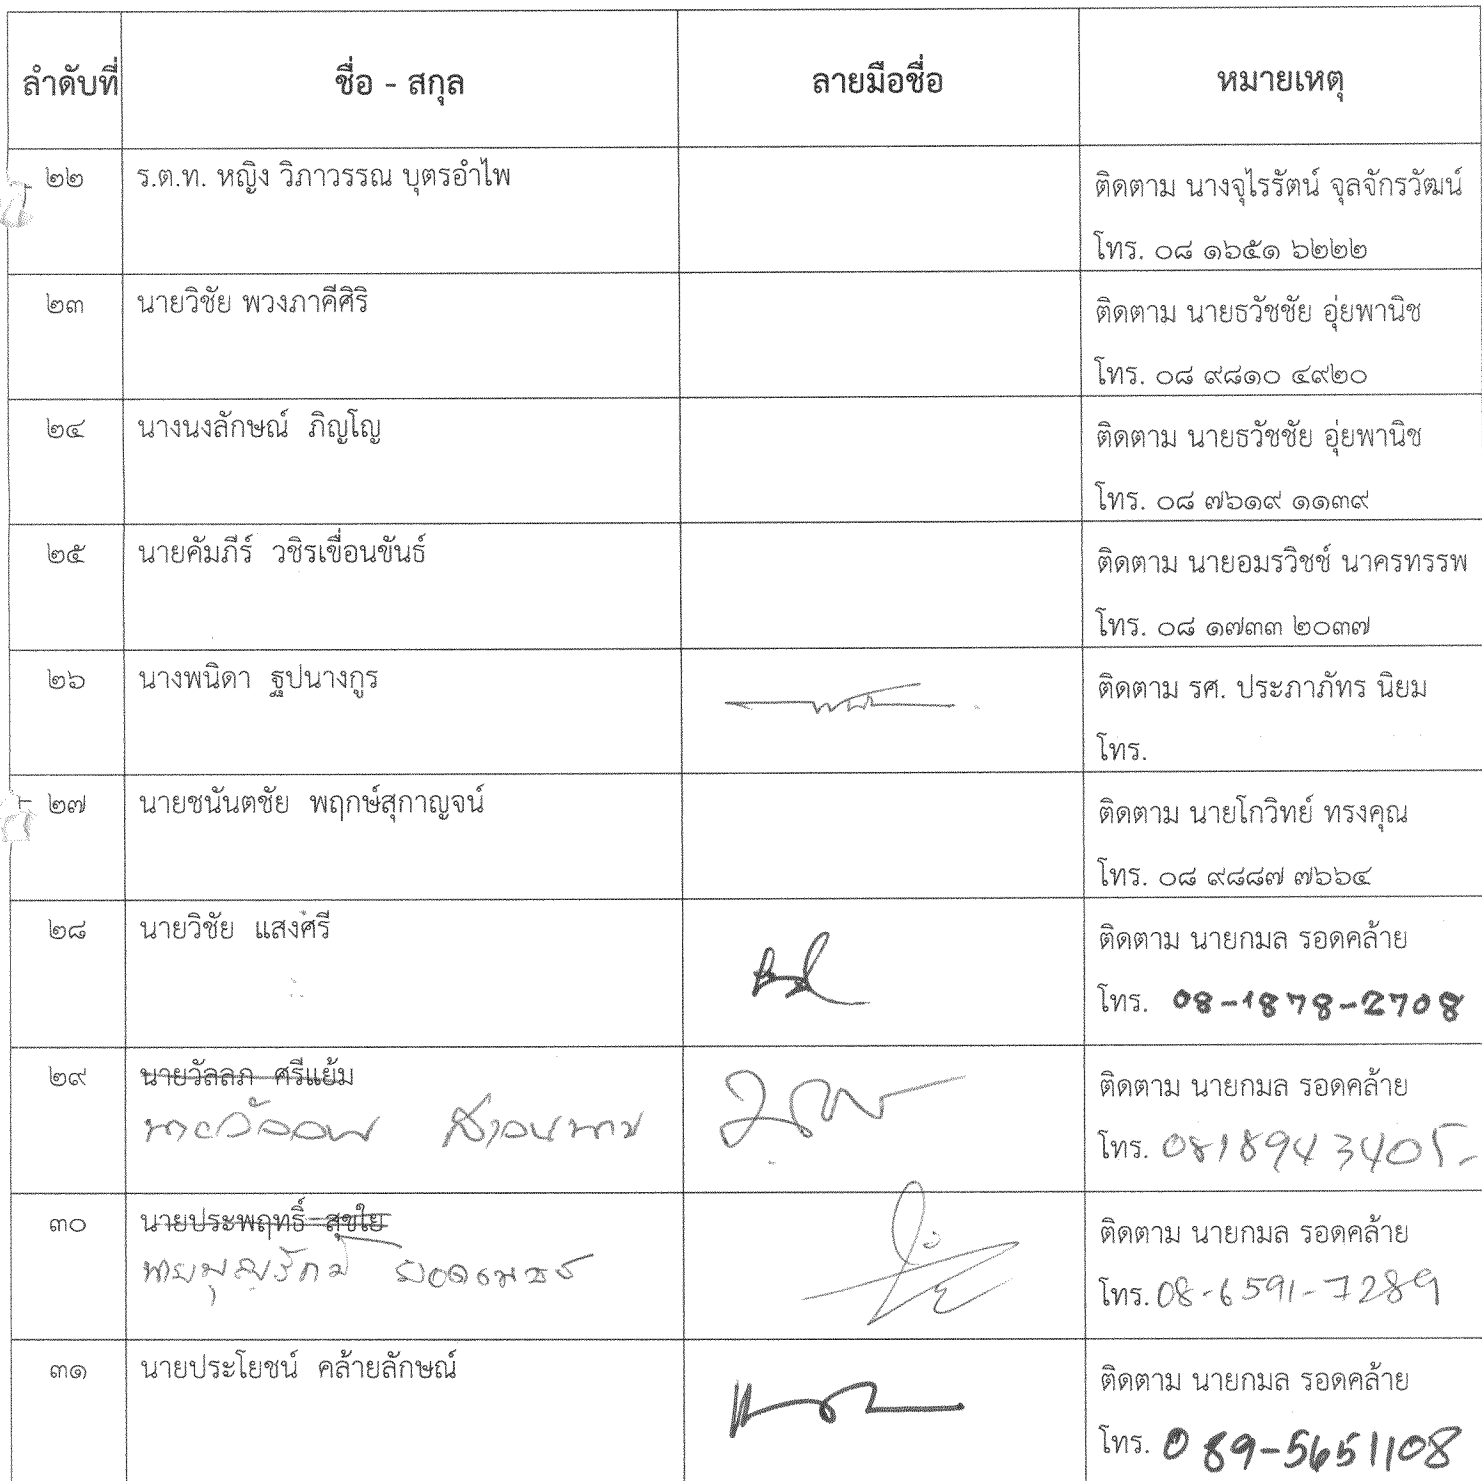 ลำดับที่ ชื่อ - สกุล ลายมือชื่อ หมายเหตุ
๒๒ ร.ต.ท. หญิง วิภาวรรณ บุตรอำไพ ติดตาม นางจุไรรัตน์ จุลจักรวัฒน์
โทร. ๐๘ ๑๖๕๑ ๖๒๒๒
๒๓ นายวิชัย พวงภาคีศิริ ติดตาม นายธวัชชัย อุ่ยพานิช
โทร. ๐๘ ๙๘๑๐ ๔๙๒๐
๒๔ นางนงลักษณ์ ภิญโญ ติดตาม นายธวัชชัย อุ่ยพานิช
โทร. ๐๘ ๗๖๑๙ ๑๑๓๙
๒๕ นายคัมภีร์ วชิรเขื่อนขันธ์ ติดตาม นายอมรวิชช์ นาครทรรพ
โทร. ๐๘ ๑๗๓๓ ๒๐๓๗
๒๖ นางพนิดา ฐปนางกูร ติดตาม รศ. ประภาภัทร นิยม
โทร.
๒๗ นายชนันตชัย พฤกษ์สุกาญจน์ ติดตาม นายโกวิทย์ ทรงคุณ
โทร. ๐๘ ๙๘๘๗ ๗๖๖๔
๒๘ นายวิชัย แสงศรี ติดตาม นายกมล รอดคล้าย
โทร. 08-1878-2708
๒๙ นายวัลลภ ศรีแย้ม ติดตาม นายกมล รอดคล้าย
โทร. 0818943405
๓๐ นายประพฤทธิ์ สุขใย ติดตาม นายกมล รอดคล้าย
โทร. 08-6591-7289
๓๑ นายประโยชน์ คล้ายลักษณ์ ติดตาม นายกมล รอดคล้าย
โทร. 089-5651108